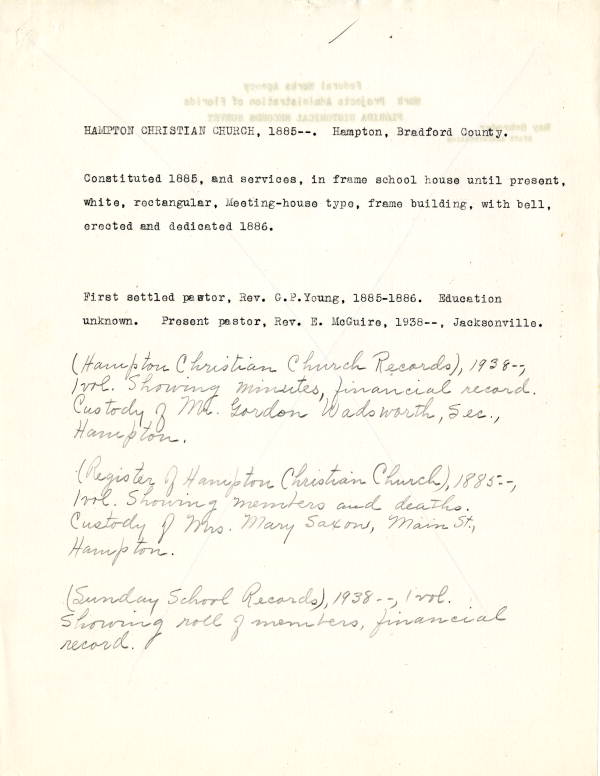 Federal Works Agency
Work Projects Administration of Florida
FLORIDA HISTORICAL RECORDS SURVEY
HAMPTON CHRISTIAN CHURCH, 1885--. Hampton, Bradford County.
Constituted 1885, and services, in frame school house until present,
white, rectangular, Meeting-house type, frame building, with bell,
erected and dedicated 1886.
First settled pastor, Rev. G.P.Young, 1885-1886. Education
unknown. Present pastor, Rev. E. McGuire, 1938--, Jacksonville.
(Hampton Christian Church Records), 1938--,
1 vol. Showing minutes, financial record.
Custody of Mr. Gordon Wadsworth, Sec.,
Hampton.
(Register of Hampton Christian Church), 1885--,
1 vol. Showing members and deaths.
Custody of Mrs. Mary Saxon, Main St.,
Hampton.
(Sunday School Records), 1938--, 1 vol.
Showing roll of members, financial
record.